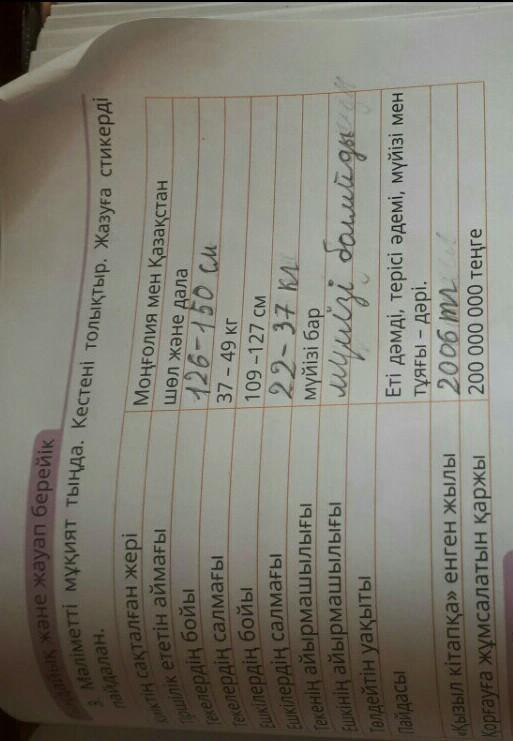 және жауап берейік
3. Мәліметті мұқият тыңда. Кестені толықтыр. Жазуға стикерді
пайдалан.
Киіктің сақталған жері Моңғолия мен Қазақстан
Тіршілік ететін аймағы шөл және дала
Текелердің бойы 126-150 см
Текелердің салмағы 37 – 49 кг
Ешкілердің бойы 109 –127 см
Ешкілердің салмағы 22-37 кг
Текенің айырмашылығы мүйізі бар
Ешкінің айырмашылығы мүйізі болмайды
Төлдейтін уақыты
Пайдасы Еті дәмді, терісі әдемі, мүйізі мен
тұяғы – дәрі.
«Қызыл кітапқа» енген жылы 2006
Қорғауға жұмсалатын қаржы 200 000 000 теңге